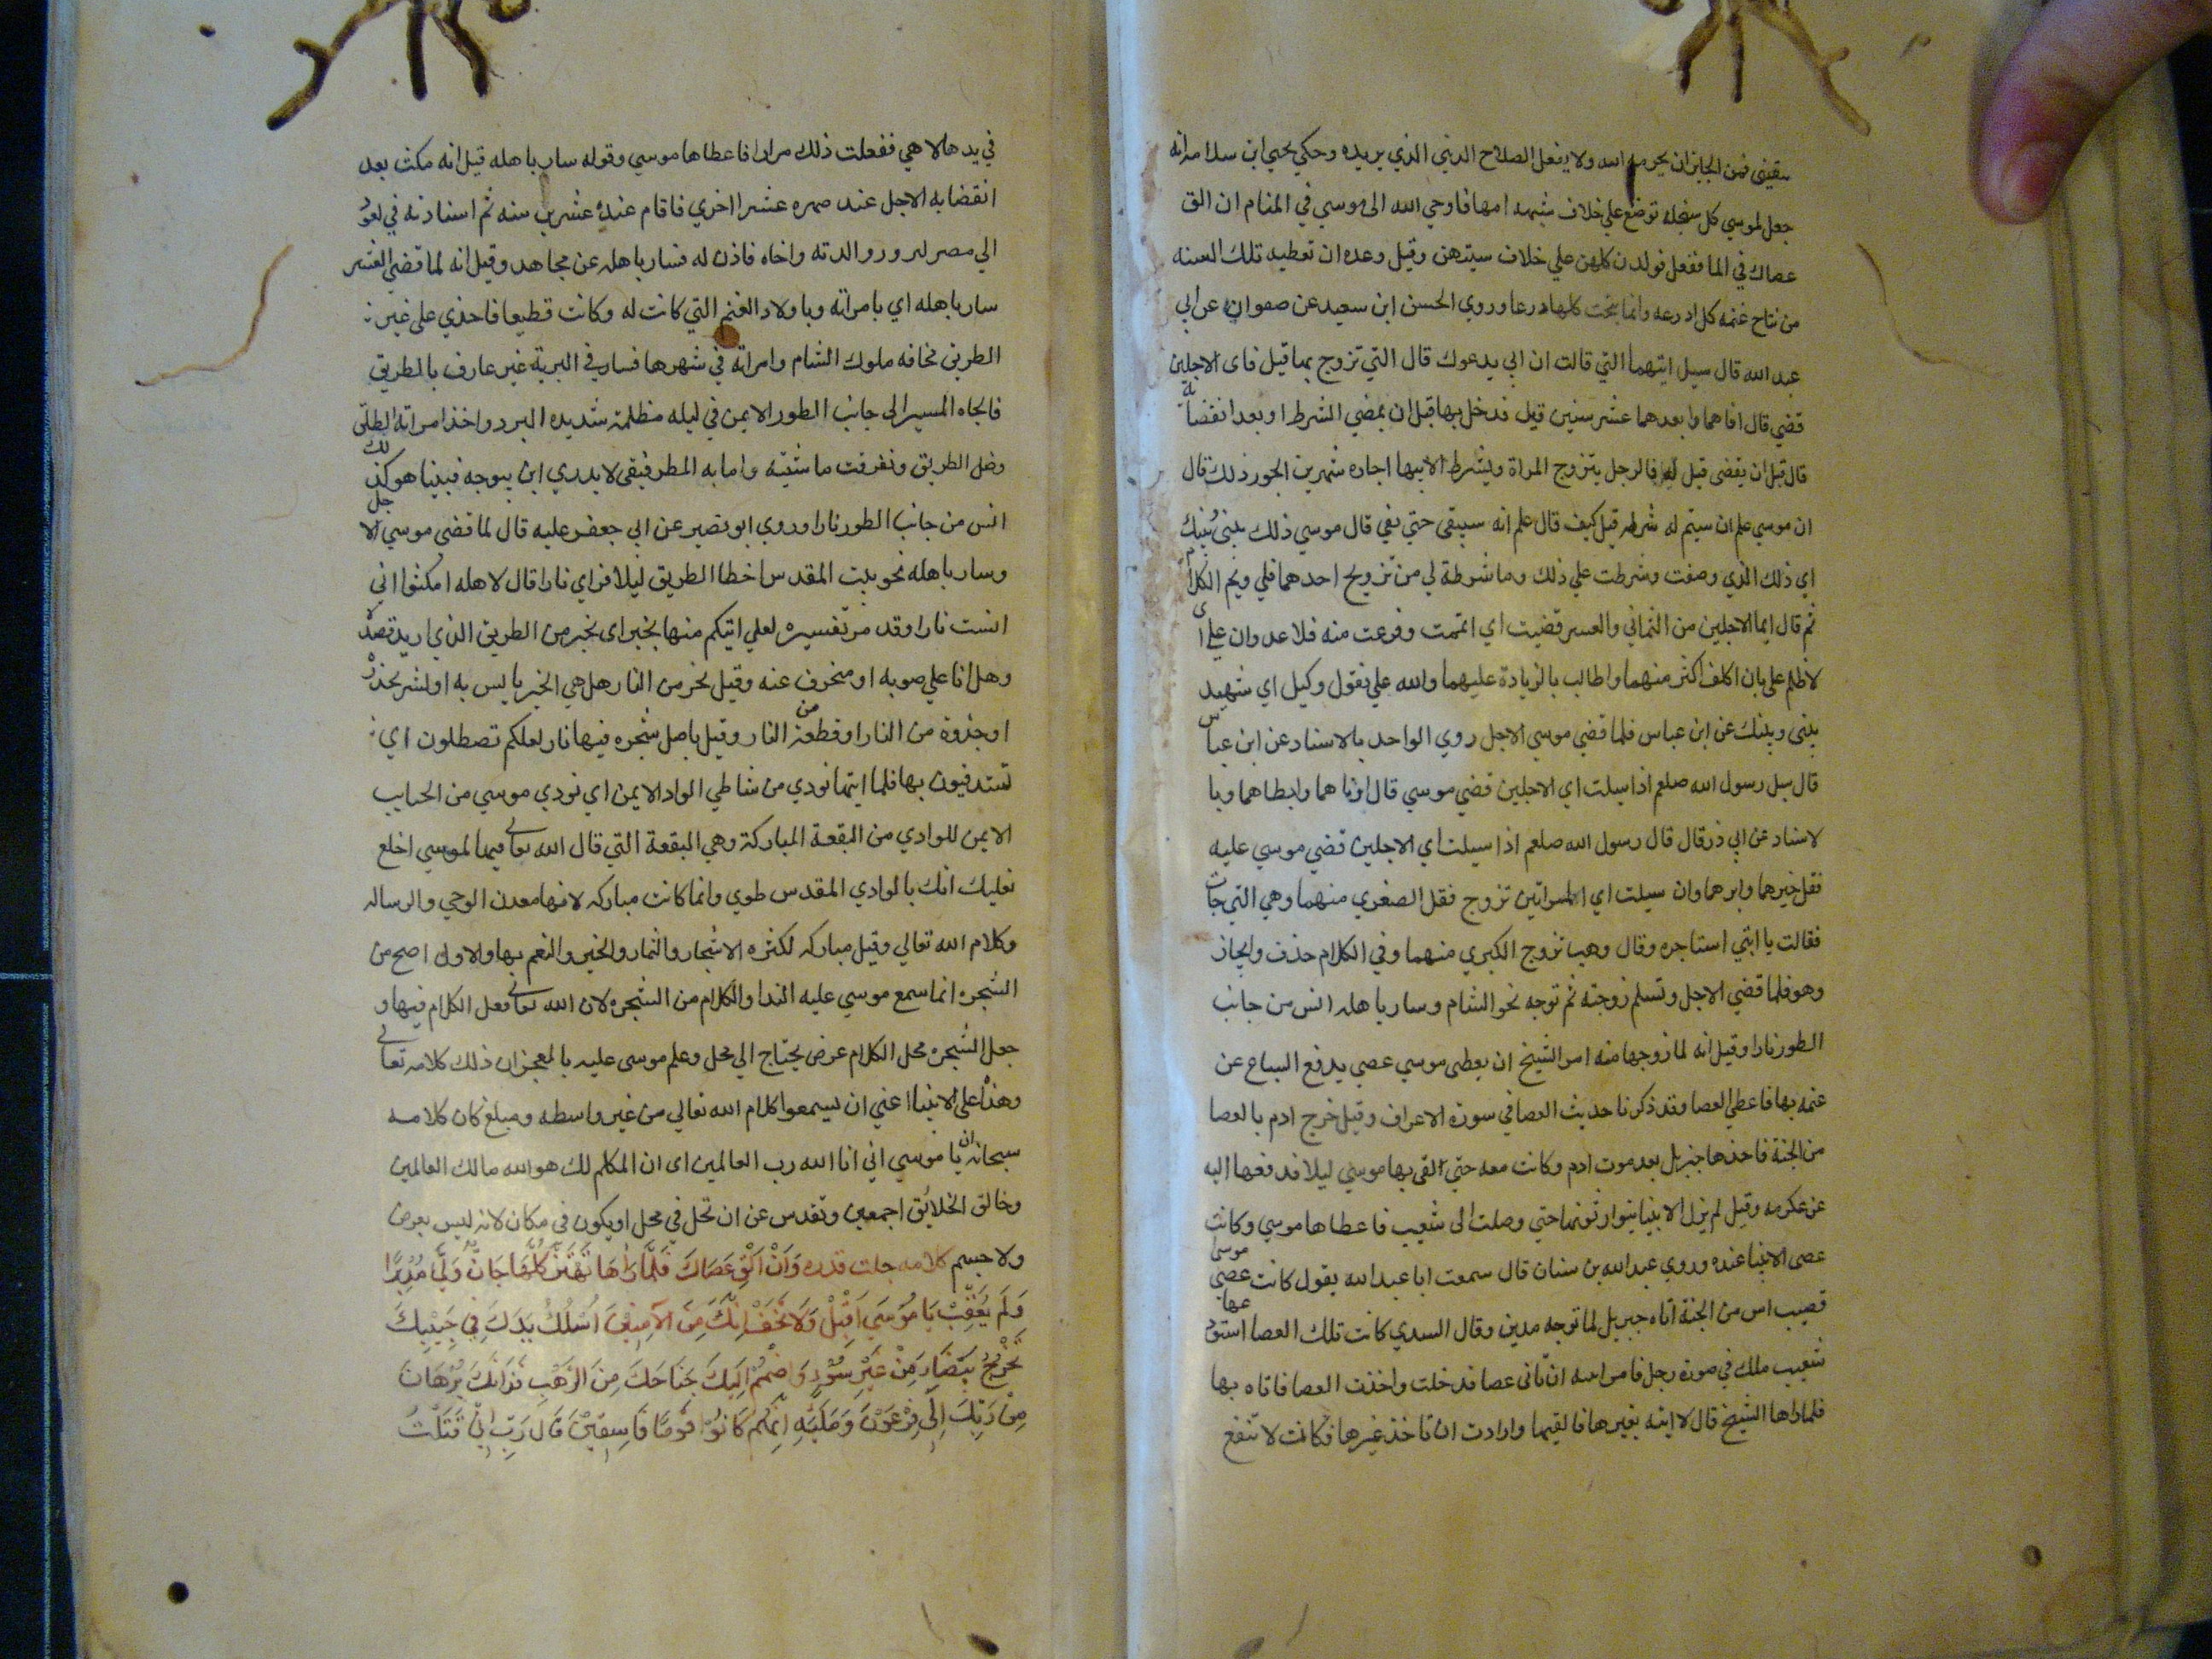 سقيني فمن الجايز ان يحرمه الله ولا يفعل الصلاح الديني الذي يريده وحكي يحيي ابن سلام انه
جعل لموسي كل سخله توضع علي خلاف شبهه امها فاوحي الله الي موسي في المنام ان الق
عصاك في الما ففعل فولدن كلهن علي خلاف سيتهن وقيل وعده ان تعطيه تلك السنه
من نتاج غنمه كل ادرعه وانما نتجت كلها درعا وروي الحسن ابن سعيد عن صفوان عن ابي
عبد الله قال سيل ايتهما التي قالت ان ابي يدعوك قال التي تزوج بها قيل فاي الاجلين
قضي قال اوفاهما وابعدهما عشر سنين قيل فدخل بها قبل ان يمضي الشرط او بعد انقضايه
قال قبل ان يقضي قيل له فالرجل يتزوج المراة ويشرط لابيها اجاره شهرين ايجوز ذلك قال
ان موسي علم ان سيتم له شرطه قيل كيف قال علم انه سيبقي حتي يفي قال موسي ذلك بيني وبينك
اي ذلك الذي وصفت وشرطت علي ذلك وما شرطة لي من تزويج احدهما فلي وتم الكلام
ثم قال ايما الاجلين من الثماني والعشر قضيت اي اتممت وفرغت منه فلا عدوان علي اي
لا ظلم علي بان اكلف اكثر منهما واطالب بالزيادة عليهما والله علي نقول وكيل اي شهيد
بيني وبينك عن ابن عباس فلما قضي موسي الاجل روي الواحد بالاسناد عن ابن عباس
قال سيل رسول الله صلعم اذا سيلت اي الاجلين قضي موسي قال اوفاهما وابطاهما وبا
لاسناد عن ابي ذر قال قال رسول الله صلعم اذا سيلت اي الاجلين قضي موسي عليه
فقل خيرهما وابرهما وان سيلت اي المراتين تزوج فقل الصغري منهما وهي التي جات
فقالت يا ابتي استاجره وقال وهب تزوج الكبري منهما وفي الكلام حذف وايجاز
وهو فلما قضي الاجل وتسلم زوجته ثم توجه نحو الشام وسار باهله انس من جانب
الطور نارا وقيل انه لما زوجها منه امر الشيخ ان يعطي موسي عصي يدفع السباع عن
غنمه بها فاعطي العصا وقد ذكرنا حديث العصا في سورة الاعراف وقيل خرج ادم بالعصا
من الجنة فاخذها جبريل بعد موت ادم وكانت معه حتي القي بها موسي ليلا فدفعها اليه
عن عكرمه وقيل لم يزل الانبيا يتوارثونها حتي وصلت الي شعيب فاعطاها موسي وكانت
عصي الانبيا عنده وروي عبد الله بن سنان قال سمعت ابا عبد الله يقول كانت عصي موسي
قضيب اس من الجنة اتاه جبريل لما توجه مدين وقال السدي كانت تلك العصا استودعها
شعيب ملك في صورة رجل فامر ابنته ان تاتي عصا فدخلت واخذت العصا فاتاه بها
فلما راها الشيخ قال لا ايته بغيرها فالقيها وارادت ان تاخذ غيرها فكانت لا تنفع
في يدها الا هي ففعلت ذلك مرارا فاعطاها موسي وقوله سار باهله قيل انه مكث بعد
انقضايه الاجل عند صهره عشرا اخري فاقام عنده عشرين سنه ثم استاذنه في العود
الي مصر ليزور والدته واخاه فاذن له فسار باهله عن مجاهد وقيل انه لما قضي العشر
سار باهله اي بامراته وباولاد الغنم التي كانت له وكانت قطيعا فاخذي علي غير
الطريق مخافه ملوك الشام وامراته في شهرها فسار في البرية غير عارف بالطريق
فالجاه المسير الي جانب الطور الايمن في ليله مظلمة شديده البرد واخذ امراته الطلق
وضل الطريق وتفرقت ماشيته واصابه المطر فبقي لا يدري اين يتوجه فبينا هو كذلك
انس من جانب الطور نارا وروي ابو بصير عن ابي جعفر عليه قال لما قضي موسي الاجل
وسار باهله نحو بيت المقدس اخطا الطريق ليلا فراي نارا قال لاهله امكثوا اني
انست نارا وقد مر تفسيره لعلي اتيكم منها بخبر اي بخبر من الطريق الذي اريد قصده
وهل انا علي صوبه او منحرف عنه وقيل بخبر من النار هل هي لخير يانس به او لشر يحذر
او جذوة من النار او قطعة من النار وقيل باصل شجره فيها نار لعلكم تصطلون اي
تستدفيون بها فلما اتيها نودي من شاطي الواد الايمن اي نودي موسي من الجانب
الايمن للوادي من البقعة المباركة وهي البقعة التي قال الله تعالي فيها لموسي اخلع
نعليك انك بالوادي المقدس طوي وانما كانت مباركه لانها معدن الوحي والرساله
وكلام الله تعالي وقيل مباركه لكثره الاشجار والثمار والخير والنعم بها والاول اصح من
الشجره انما سمع موسي عليه الندا والكلام من الشجره لان الله تعالي فعل الكلام فيها و
جعل الشجره محل الكلام عرض يحتاج الي محل وعلم موسي عليه بالمعجز ان ذلك كلامه تعالي
وهذا علي الانبيا اعني ان يسمعوا كلام الله تعالي من غير واسطه ومبلغ كان كلامه
سبحانه ان يا موسي اني انا الله رب العالمين اي ان المكلم لك هو الله مالك العالمين
وخالق الخلايق اجمعين وتقدس عن ان تحل في محل او يكون في مكان لانه ليس بعرض
ولا جسم كلامه جلت قدره وَاَنْ اَلْقِ عَصَاكَ فَلَمَّا رَاٰهَا تَهْتَزُّ كَاَنَّهَا جَانٌّ وَلَّي مُدْبِرًا
وَلَمْ يُعَقِّبْ يَا مُوسَي اَقْبِلْ وَلَا تَخَفْ اِنَّكَ مِنَ الْاٰمِنِيْنَ اُسْلُكْ يَدَكَ فِي جَيْبِكَ
تَخْرُجْ بَيْضَاءَ مِنْ غَيْرِ سُوْءٍ وَاضْمُمْ اِلَيْكَ جَنَاحَكَ مِنَ الرَّهْبِ فَذَانِكَ بُرْهَانَانِ
مِنْ رَبِّكَ اِلَي فِرْعَوْنَ وَمَلَئِهِ اِنَّهُمْ كَانُوْا قَوْمًا فَاسِقِيْنَ قَالَ رَبِّ اِنِّي قَتَلْتُ